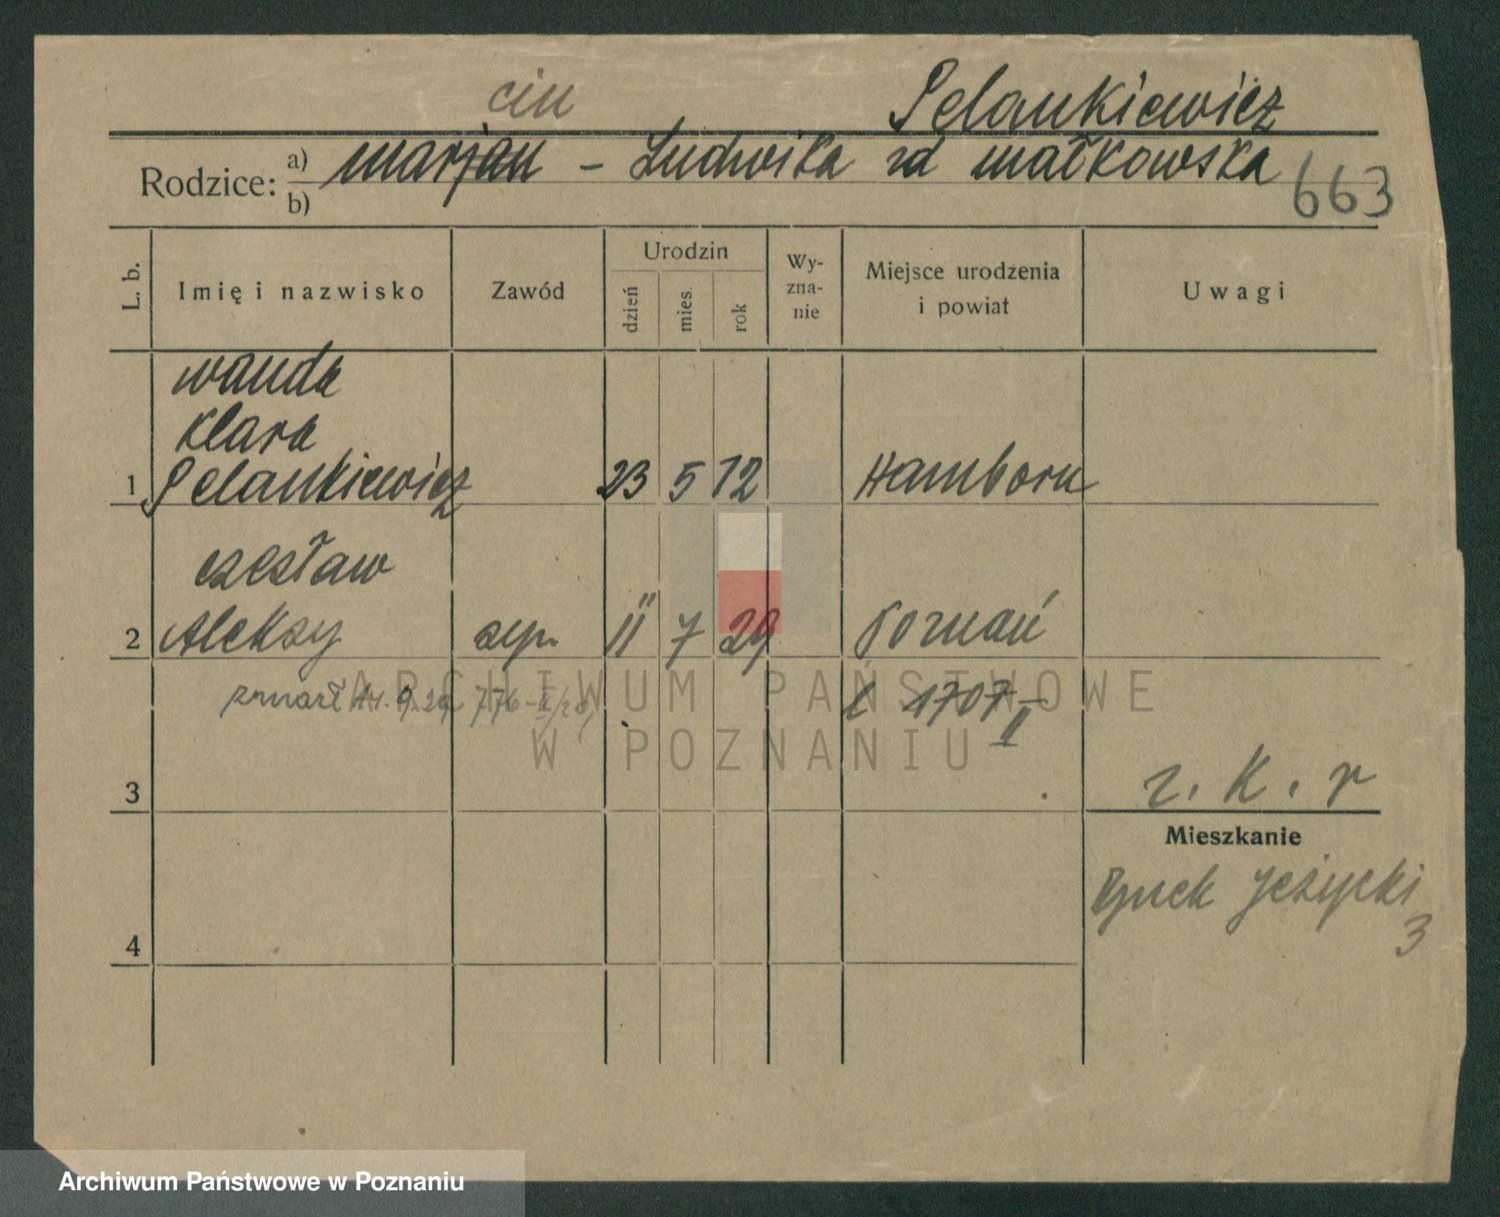 cin
Pelankiewicz
Rodzice: a) marjan - Ludwika zd małkowska
b)
663
L. b.
Imię i nazwisko
Zawód
Urodzin
dzień
mies.
rok
Wy-
zna-
nie
Miejsce urodzenia
i powiat
Uwagi
wanda
Klara
1 Pelankiewicz 23 5 12 Hamborn
czesław
2 Aleksy 11 7 29 Poznań
zmarł 14. 9. 29. 776
1707 II
3
r. k. r
Mieszkanie
Rynek Jeżycki
3
4
ARCHIWUM PAŃSTWOWE
W POZNANIU
Archiwum Państwowe w Poznaniu